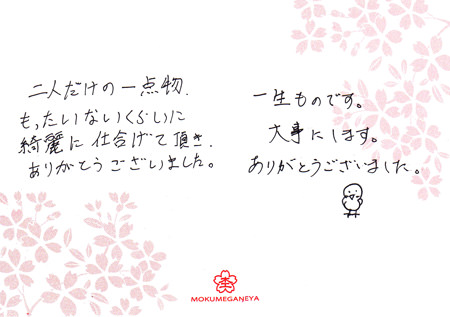 二人だけの一点物.
もったいないくらいに
綺麗に仕合げて頂き.
ありがとうございました。
一生ものです。
大事にします。
ありがとうございました。
MOKUMEGANEYA